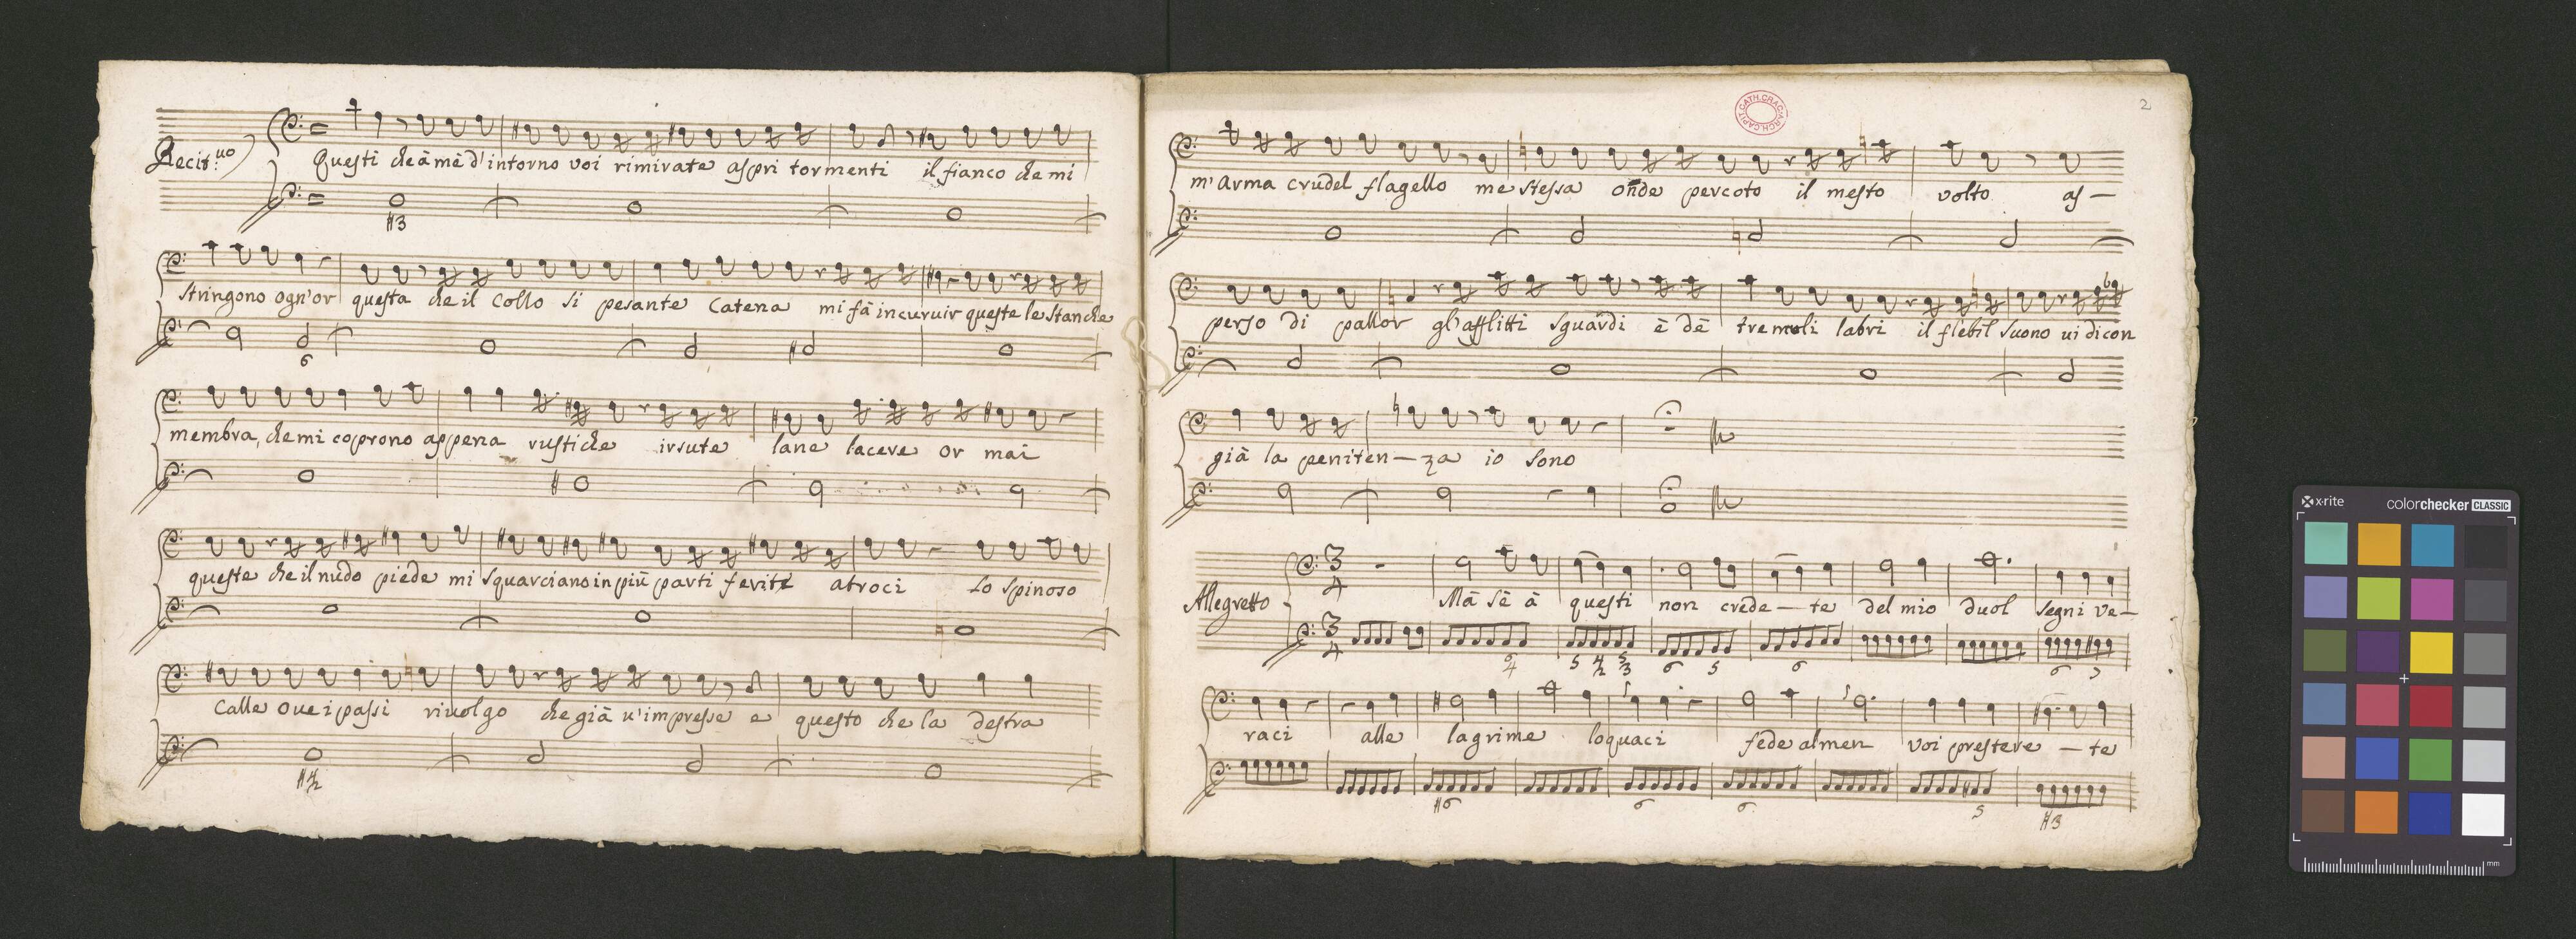 Recit:uo
Questi che à mè d'intorno voi rimirate aspri tormenti il fianco che mi
#3
stringono ogn'or questa che il collo si pesante catena mi fà incuruir queste le stanche
6
membra, che mi coprono appena rustiche irsute lane lacere or mai
queste che il nudo piede mi squarciano in più parti ferite atroci Lo spinoso
calle oue i passi riuolgo che già u'impresse e questo che la destra
#4/2
2
CATH.CRAC. ARCH.CAPIT
m'arma crudel flagello me stessa onde percoto il mesto volto as-
perso di pallor gl'afflitti sguardi è dè tremoli labri il flebil suono ui dicon
già la peniten-za io sono
Allegretto
3 4
Mà sè à questi non crede-te del mio duol segni ve-
3 4
6 4 5 4 2 5 3 6 5 6 6 5
raci alle lagrime loquaci fede almen voi prestere-te
#6 6 6 5 #3
x-rite colorchecker CLASSIC
mm